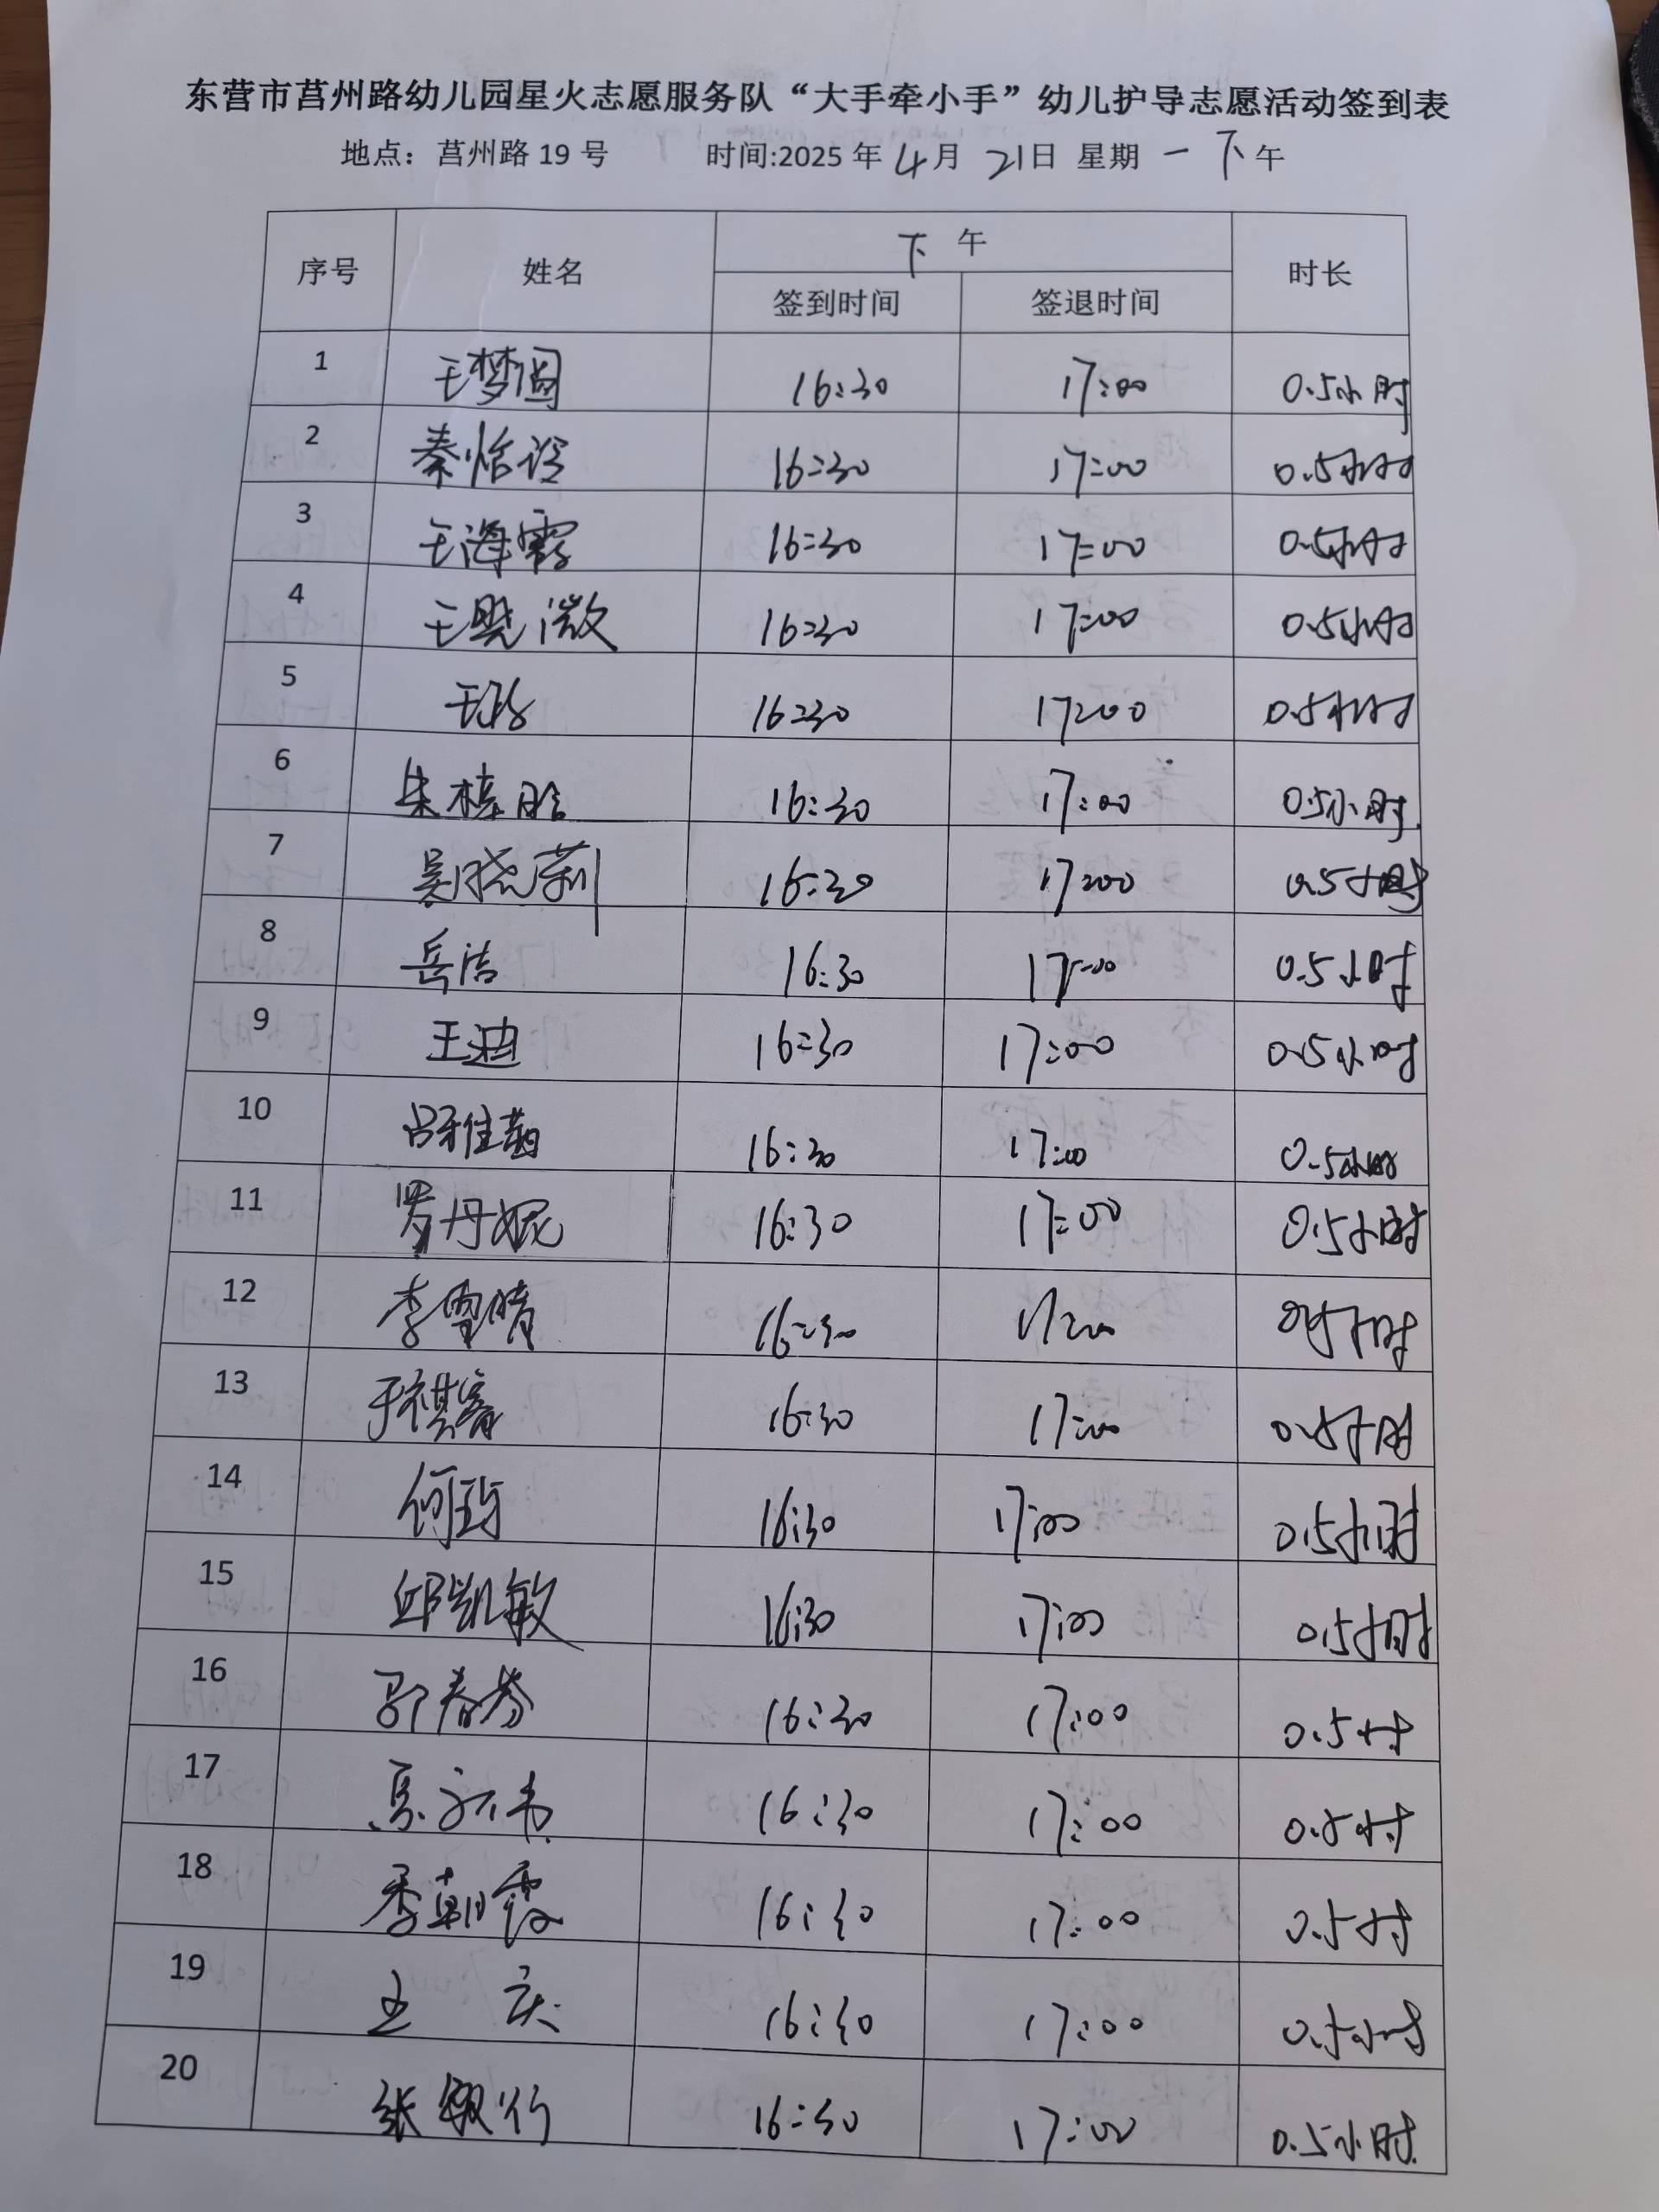 东营市莒州路幼儿园星火志愿服务队“大手牵小手”幼儿护导志愿活动签到表
地点：莒州路 19 号 时间:2025 年 4 月 21日 星期 一 下午
序号 姓名 下午 时长
签到时间 签退时间
1 王梦圆 16:30 17:00 0.5小时
2 秦怡 16:30 17:00 0.5小时
3 王海霞 16:30 17:00 0.5小时
4 王晓微 16:30 17:00 0.5小时
5 16:30 17:00 0.5小时
6 朱 16:30 17:00 0.5小时
7 吴晓莉 16:30 17:00 0.5小时
8 岳洁 16:30 17:00 0.5小时
9 王迪 16:30 17:00 0.5小时
10 吕雅菊 16:30 17:00 0.5小时
11 罗丹妮 16:30 17:00 0.5小时
12 李雪晴 16:30 17:00 0.5小时
13 于祺 16:30 17:00 0.5小时
14 何 16:30 17:00 0.5小时
15 邱凯敏 16:30 17:00 0.5小时
16 春芬 16:30 17:00 0.5小时
17 16:30 17:00 0.5小时
18 李朝霞 16:30 17:00 0.5小时
19 王庆 16:30 17:00 0.5小时
20 张 16:30 17:00 0.5小时